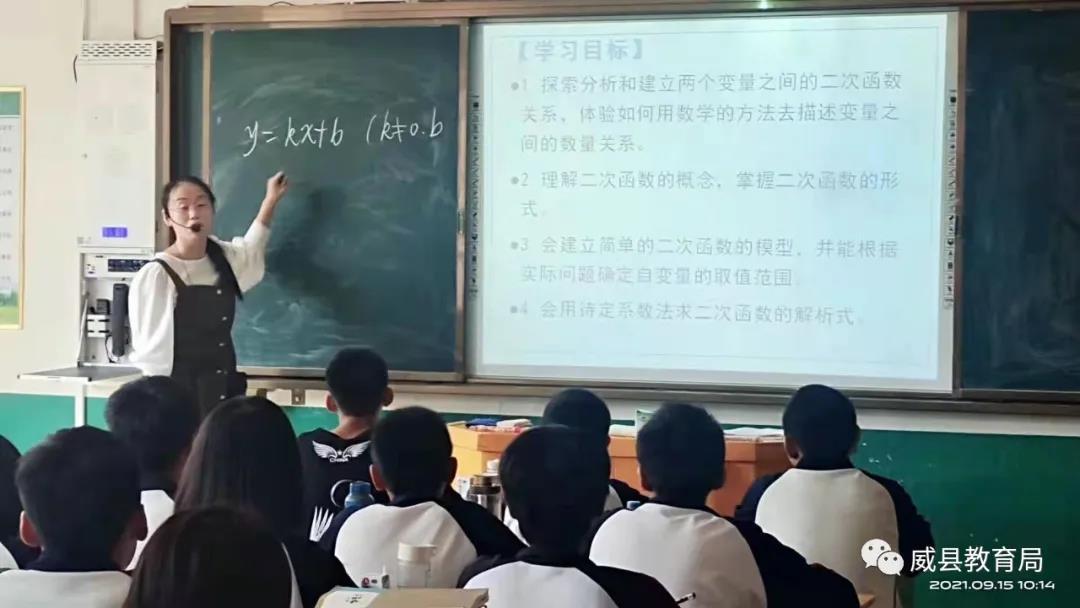 y=kx+b (k≠0.b
【学习目标】
●1 探索分析和建立两个变量之间的二次函数
关系，体验如何用数学的方法去描述变量之
间的数量关系。
●2 理解二次函数的概念，掌握二次函数的形
式。
●3 会建立简单的二次函数的模型，并能根据
实际问题确定自变量的取值范围.
●4 会用待定系数法求二次函数的解析式.
CHINA
威县教育局
2021.09.15 10:14